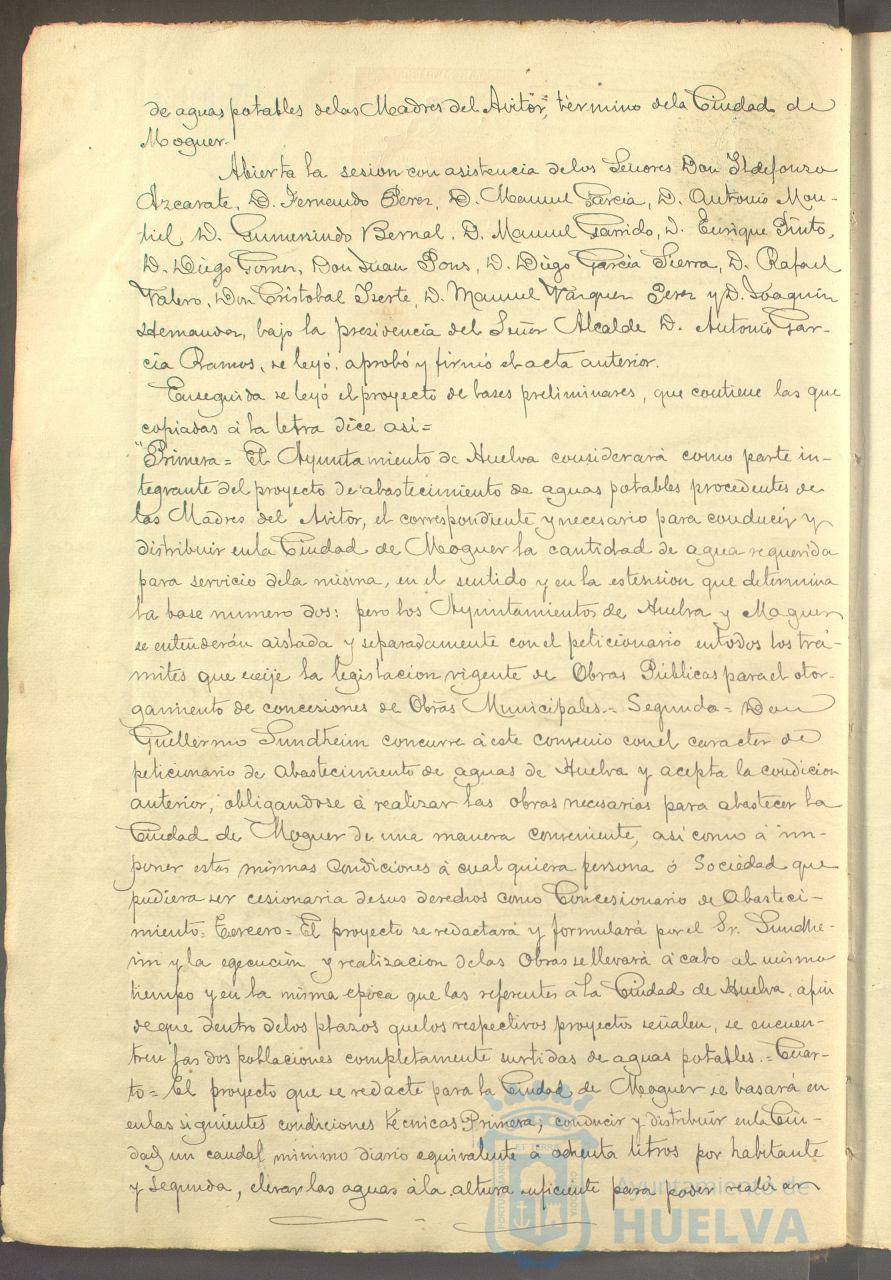 de aguas potables de las Madres del Avitor, término de la Ciudad de
Moguer.
Abierta la sesion con asistencia de los Señores Don Ildefonso
Azcarate, D. Fernando Perez, D. Manuel Garcia, D. Antonio Mon-
tiel D. Gumersindo Bernal, D. Manuel Garrido, D. Enrique Pinto,
D. Diego Gomez, Don Juan Pons, D. Diego Garcia Sierra, D. Rafael
Valero, Don Cristobal Iserte, D. Manuel Vazquez Perez y D. Joaquin
Hernandez, bajo la presidencia del Señor Alcalde D. Antonio Gar-
cia Ramos, se leyó, aprobó y firmó el acta anterior.
Enseguida se leyó el proyecto de bases preliminares, que contiene las que
copiadas á la letra dice asi=
"Primera= El Ayuntamiento de Huelva considerará como parte in-
tegrante del proyecto de abastecimiento de aguas potables procedentes de
las Madres del Avitor, el correspondiente y necesario para conducir y
distribuir en la Ciudad de Moguer la cantidad de agua requerida
para servicio de la misma, en el sentido y en la estension que determina
la base numero dos: pero los Ayuntamientos de Huelva y Moguer
se entenderán aislada y separadamente con el peticionario en todos los trá-
mites que exije la legislacion vigente de Obras Públicas para el otor-
gamiento de concesiones de Obras Municipales.= Segunda= Don
Guillermo Sundheim concurre á este convenio con el caracter de
peticionario de abastecimiento de aguas de Huelva y acepta la condicion
anterior, obligandose á realizar las obras necesarias para abastecer la
Ciudad de Moguer de una manera conveniente, así como á im-
poner estas mismas condiciones á cual quiera persona ó Sociedad que
pudiera ser cesionaria de sus derechos como Concesionario de Abasteci-
miento= Tercero= El proyecto se redactará y formulará por el Sr. Sundhe-
im y la egecución y realizacion de las Obras se llevará á cabo al mismo
tiempo y en la misma epoca que las referentes á la Ciudad de Huelva, afin
de que dentro de los plazos que los respectivos proyectos señalen, se encuen-
tren las dos poblaciones completamente surtidas de aguas potables.= Cuar-
to= El proyecto que se redacte para la Ciudad de Moguer se basará en
en las siguientes condiciones técnicas Primera; conducir y distribuir en la Ciu-
dad un caudal minimo diario equivalente á ochenta litros por habitante
y segunda, elevar las aguas á la altura suficiente para poder realizar
Ayuntamiento de
HUELVA